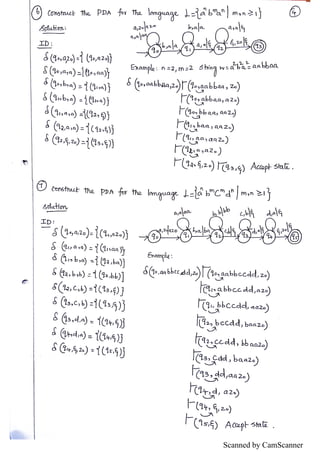 ⑥ Construct the PDA for the language L={aⁿ bᵐ aⁿ | m,n ≥ 1}
④
Solution:
ID:
δ(q0,a,z0) = {(q0,az0)}
δ(q0,a,a) = {(q0,aa)}
δ(q0,b,a) = {(q1,a)}
δ(q1,b,a) = {(q1,a)}
δ(q1,a,a) = {(q2,ε)}
δ(q2,a,a) = {(q2,ε)}
δ(q2,ε,z0) = {(q3,ε)}
Example: n=2, m=2 string w = a²b²a² = aabbaa
δ(q0,aabbaa,z0) ⊢ (q0,abbaa,az0)
⊢ (q0,bbaa,aaz0)
⊢ (q1,baa,aaz0)
⊢ (q1,aa,aaz0)
⊢ (q2,a,az0)
⊢ (q2,ε,z0) ⊢ (q3,ε) Accept state.
⑦ Construct the PDA for the language L={aⁿ bᵐ cᵐ dⁿ | m,n ≥ 1}
Solution
ID:
δ(q0,a,z0) = {(q1,az0)}
δ(q1,a,a) = {(q1,aa)}
δ(q1,b,a) = {(q2,ba)}
δ(q2,b,b) = {(q2,bb)}
δ(q2,c,b) = {(q3,ε)}
δ(q3,c,b) = {(q3,ε)}
δ(q3,d,a) = {(q4,ε)}
δ(q4,d,a) = {(q4,ε)}
δ(q4,ε,z0) = {(q5,ε)}
Example:
δ(q0,aabbccdd,z0)
⊢ (q1,abbccdd,az0)
⊢ (q1,bbccdd,aaz0)
⊢ (q2,bccdd,baaz0)
⊢ (q2,ccdd,bbaaz0)
⊢ (q3,cdd,baaz0)
⊢ (q3,dd,aaz0)
⊢ (q4,d,az0)
⊢ (q4,ε,z0)
⊢ (q5,ε) Accept state.
Scanned by CamScanner